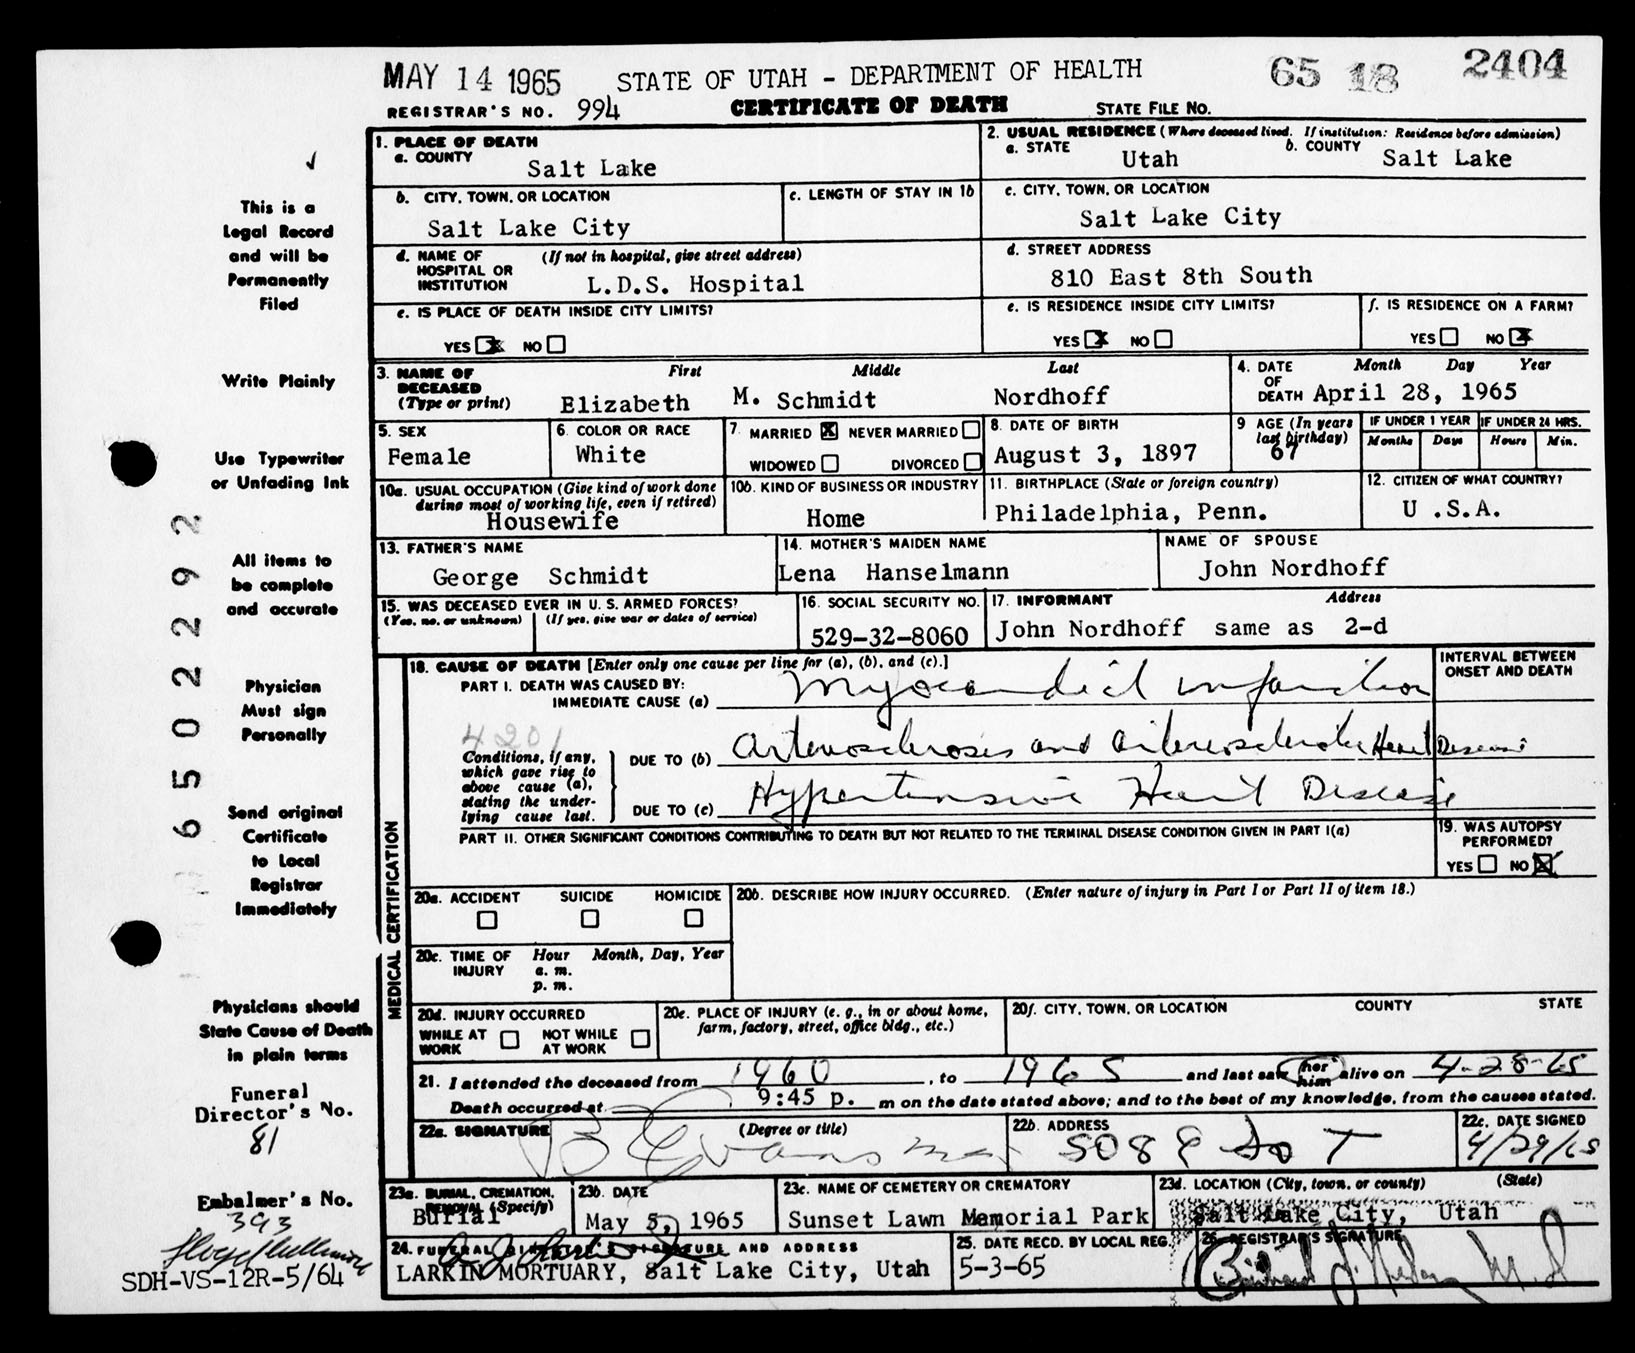 MAY 14 1965 STATE OF UTAH - DEPARTMENT OF HEALTH 65 18 2404
REGISTRAR'S NO. 994 CERTIFICATE OF DEATH STATE FILE NO.
1. PLACE OF DEATH
a. COUNTY
Salt Lake
2. USUAL RESIDENCE (Where deceased lived. If institution: Residence before admission)
a. STATE b. COUNTY
Utah Salt Lake
b. CITY, TOWN, OR LOCATION
Salt Lake City
c. LENGTH OF STAY IN 1b
c. CITY, TOWN, OR LOCATION
Salt Lake City
d. NAME OF HOSPITAL OR INSTITUTION (If not in hospital, give street address)
L.D.S. Hospital
d. STREET ADDRESS
810 East 8th South
e. IS PLACE OF DEATH INSIDE CITY LIMITS?
YES X NO
e. IS RESIDENCE INSIDE CITY LIMITS?
YES X NO
f. IS RESIDENCE ON A FARM?
YES NO X
3. NAME OF DECEASED (Type or print) First Middle Last
Elizabeth M. Schmidt Nordhoff
4. DATE OF DEATH Month Day Year
April 28, 1965
5. SEX
Female
6. COLOR OR RACE
White
7. MARRIED X NEVER MARRIED
WIDOWED DIVORCED
8. DATE OF BIRTH
August 3, 1897
9 AGE (In years last birthday)
67
IF UNDER 1 YEAR IF UNDER 24 HRS.
Months Days Hours Min.
10a. USUAL OCCUPATION (Give kind of work done during most of working life, even if retired)
Housewife
10b. KIND OF BUSINESS OR INDUSTRY
Home
11. BIRTHPLACE (State or foreign country)
Philadelphia, Penn.
12. CITIZEN OF WHAT COUNTRY?
U .S.A.
13. FATHER'S NAME
George Schmidt
14. MOTHER'S MAIDEN NAME
Lena Hanselmann
NAME OF SPOUSE
John Nordhoff
15. WAS DECEASED EVER IN U. S. ARMED FORCES?
(Yes, no, or unknown) (If yes, give war or dates of service)
16. SOCIAL SECURITY NO.
529-32-8060
17. INFORMANT Address
John Nordhoff same as 2-d
MEDICAL CERTIFICATION
18. CAUSE OF DEATH [Enter only one cause per line for (a), (b), and (c).]
INTERVAL BETWEEN ONSET AND DEATH
PART I. DEATH WAS CAUSED BY:
IMMEDIATE CAUSE (a) Myocardial infarction
4201
Conditions, if any, which gave rise to above cause (a), stating the underlying cause last.
DUE TO (b) Arteriosclerosis and arteriosclerotic Heart Disease
DUE TO (c) Hypertensive Heart Disease
PART II. OTHER SIGNIFICANT CONDITIONS CONTRIBUTING TO DEATH BUT NOT RELATED TO THE TERMINAL DISEASE CONDITION GIVEN IN PART I(a)
19. WAS AUTOPSY PERFORMED?
YES NO X
20a. ACCIDENT SUICIDE HOMICIDE
20b. DESCRIBE HOW INJURY OCCURRED. (Enter nature of injury in Part I or Part II of item 18.)
20c. TIME OF INJURY Hour Month, Day, Year
a. m.
p. m.
20d. INJURY OCCURRED
WHILE AT WORK NOT WHILE AT WORK
20e. PLACE OF INJURY (e. g., in or about home, farm, factory, street, office bldg., etc.)
20f. CITY, TOWN, OR LOCATION COUNTY STATE
21. I attended the deceased from 1960, to 1965 and last saw her him alive on 4-28-65
Death occurred at 9:45 p. m on the date stated above; and to the best of my knowledge, from the causes stated.
22a. SIGNATURE (Degree or title)
22b. ADDRESS
508 E So T
22c. DATE SIGNED
4/29/65
23a. BURIAL, CREMATION, REMOVAL (Specify)
Burial
23b. DATE
May 5, 1965
23c. NAME OF CEMETERY OR CREMATORY
Sunset Lawn Memorial Park
23d. LOCATION (City, town, or county) (State)
Salt Lake City, Utah
24. FUNERAL DIRECTOR'S SIGNATURE AND ADDRESS
LARKIN MORTUARY, Salt Lake City, Utah
25. DATE RECD. BY LOCAL REG.
5-3-65
26. REGISTRAR'S SIGNATURE
This is a
Legal Record
and will be
Permanently
Filed
Write Plainly
Use Typewriter
or Unfading Ink
All items to
be complete
and accurate
Physician
Must sign
Personally
Send original
Certificate
to Local
Registrar
Immediately
Physicians should
State Cause of Death
in plain terms
Funeral
Director's No.
81
Embalmer's No.
393
SDH-VS-12R-5/64
6502292